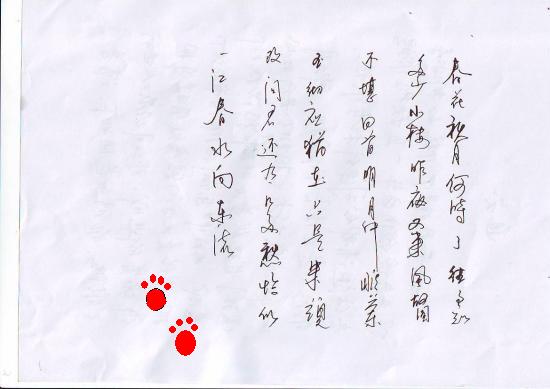 春花秋月何时了往事知
多少小楼昨夜又东风故国
不堪回首明月中雕栏
玉砌应犹在只是朱颜
改问君还有几多愁恰似
一江春水向东流